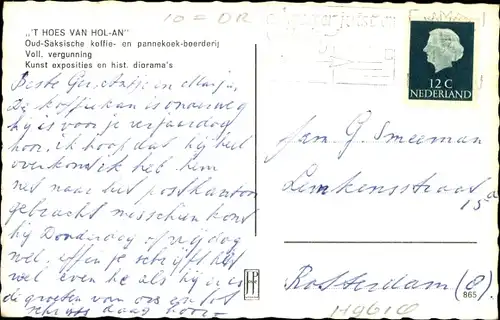 10 = DR
„'T HOES VAN HOL-AN”
Oud-Saksische koffie- en pannekoek-boerderij
Voll. vergunning
Kunst exposities en hist. diorama's
Beste Gerretje en Marja,
De koffiekan is onderweg
hij is voor je verjaardag
hoor. ik hoop dat hij heel
overkomt ik heb hem
net naar het postkantoor
gebracht misschien komt
hij Donderdag of vrijdag
wel. je schrijft het
wel even he als hij er is
de groeten van ons en tot
schrijfs daag hoor
12 C
NEDERLAND
fam. G. Smeeman
Lemkensstraat
15a
Rotterdam (O.)
865